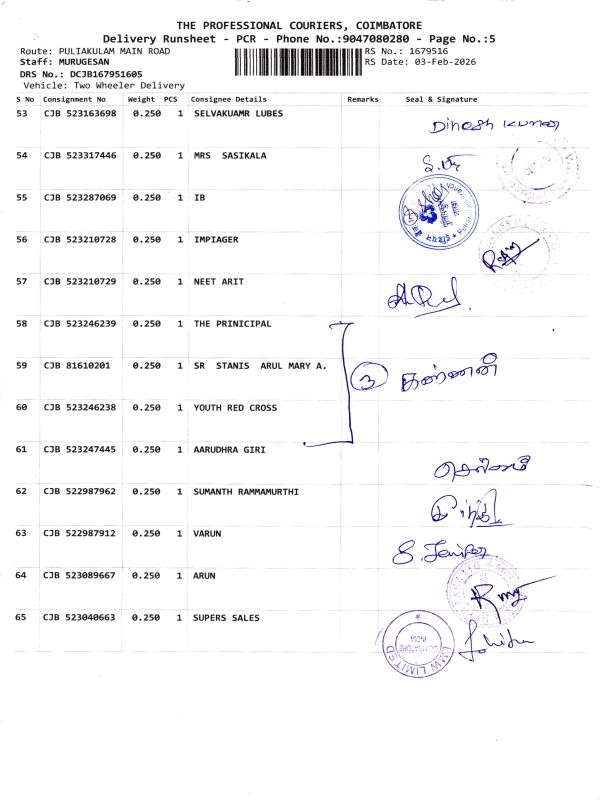 THE PROFESSIONAL COURIERS, COIMBATORE
Delivery Runsheet - PCR - Phone No.:9047080280 - Page No.:5
Route: PULIAKULAM MAIN ROAD RS No.: 1679516
Staff: MURUGESAN RS Date: 03-Feb-2026
DRS No.: DCJB167951605
Vehicle: Two Wheeler Delivery
S No Consignment No Weight PCS Consignee Details Remarks Seal & Signature
53 CJB 523163698 0.250 1 SELVAKUAMR LUBES Dinesh Kumar
54 CJB 523317446 0.250 1 MRS SASIKALA
55 CJB 523287069 0.250 1 IB
56 CJB 523210728 0.250 1 IMPIAGER
57 CJB 523210729 0.250 1 NEET ARIT
58 CJB 523246239 0.250 1 THE PRINICIPAL
59 CJB 81610201 0.250 1 SR STANIS ARUL MARY A. 3
60 CJB 523246238 0.250 1 YOUTH RED CROSS
61 CJB 523247445 0.250 1 AARUDHRA GIRI
62 CJB 522987962 0.250 1 SUMANTH RAMMAMURTHI
63 CJB 522987912 0.250 1 VARUN
64 CJB 523089667 0.250 1 ARUN
65 CJB 523040663 0.250 1 SUPERS SALES
LMW LIMITED
COIMBATORE
INDIA